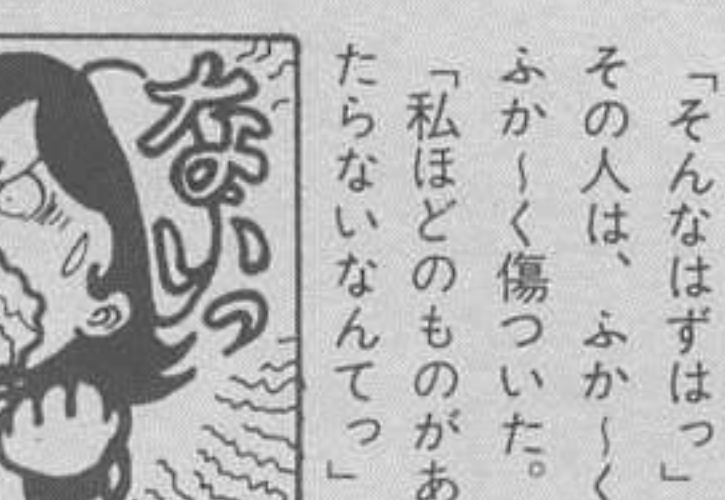 「そんなはずはっ」
その人は、ふか〜く
ふか〜く傷ついた。
「私ほどのものがあ
たらないなんてっ」
ないっ